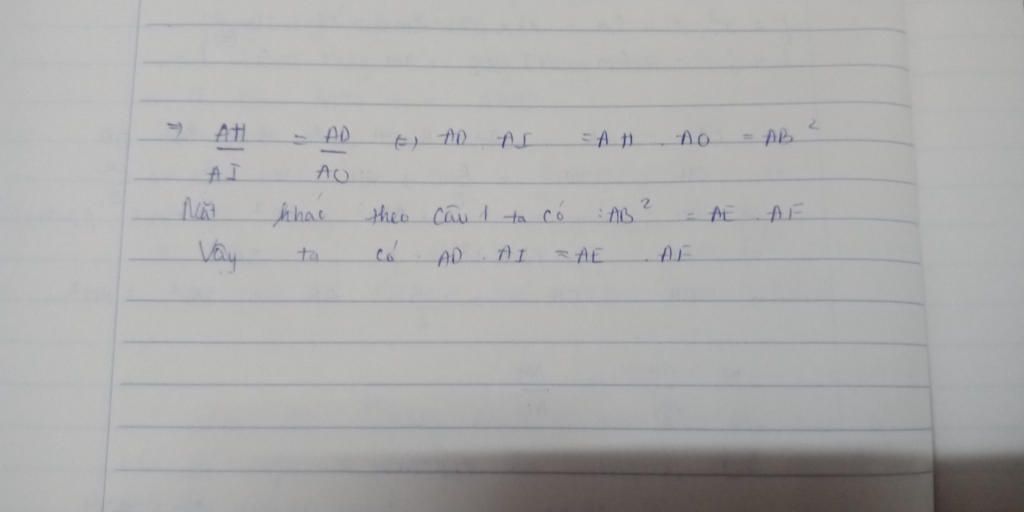 ⇒ AH = AD ⇔ AD . AI = AH . AO = AB²
AI AO
Mặt khác theo câu 1 ta có : AB² = AE . AF
Vậy ta có AD . AI = AE . AF